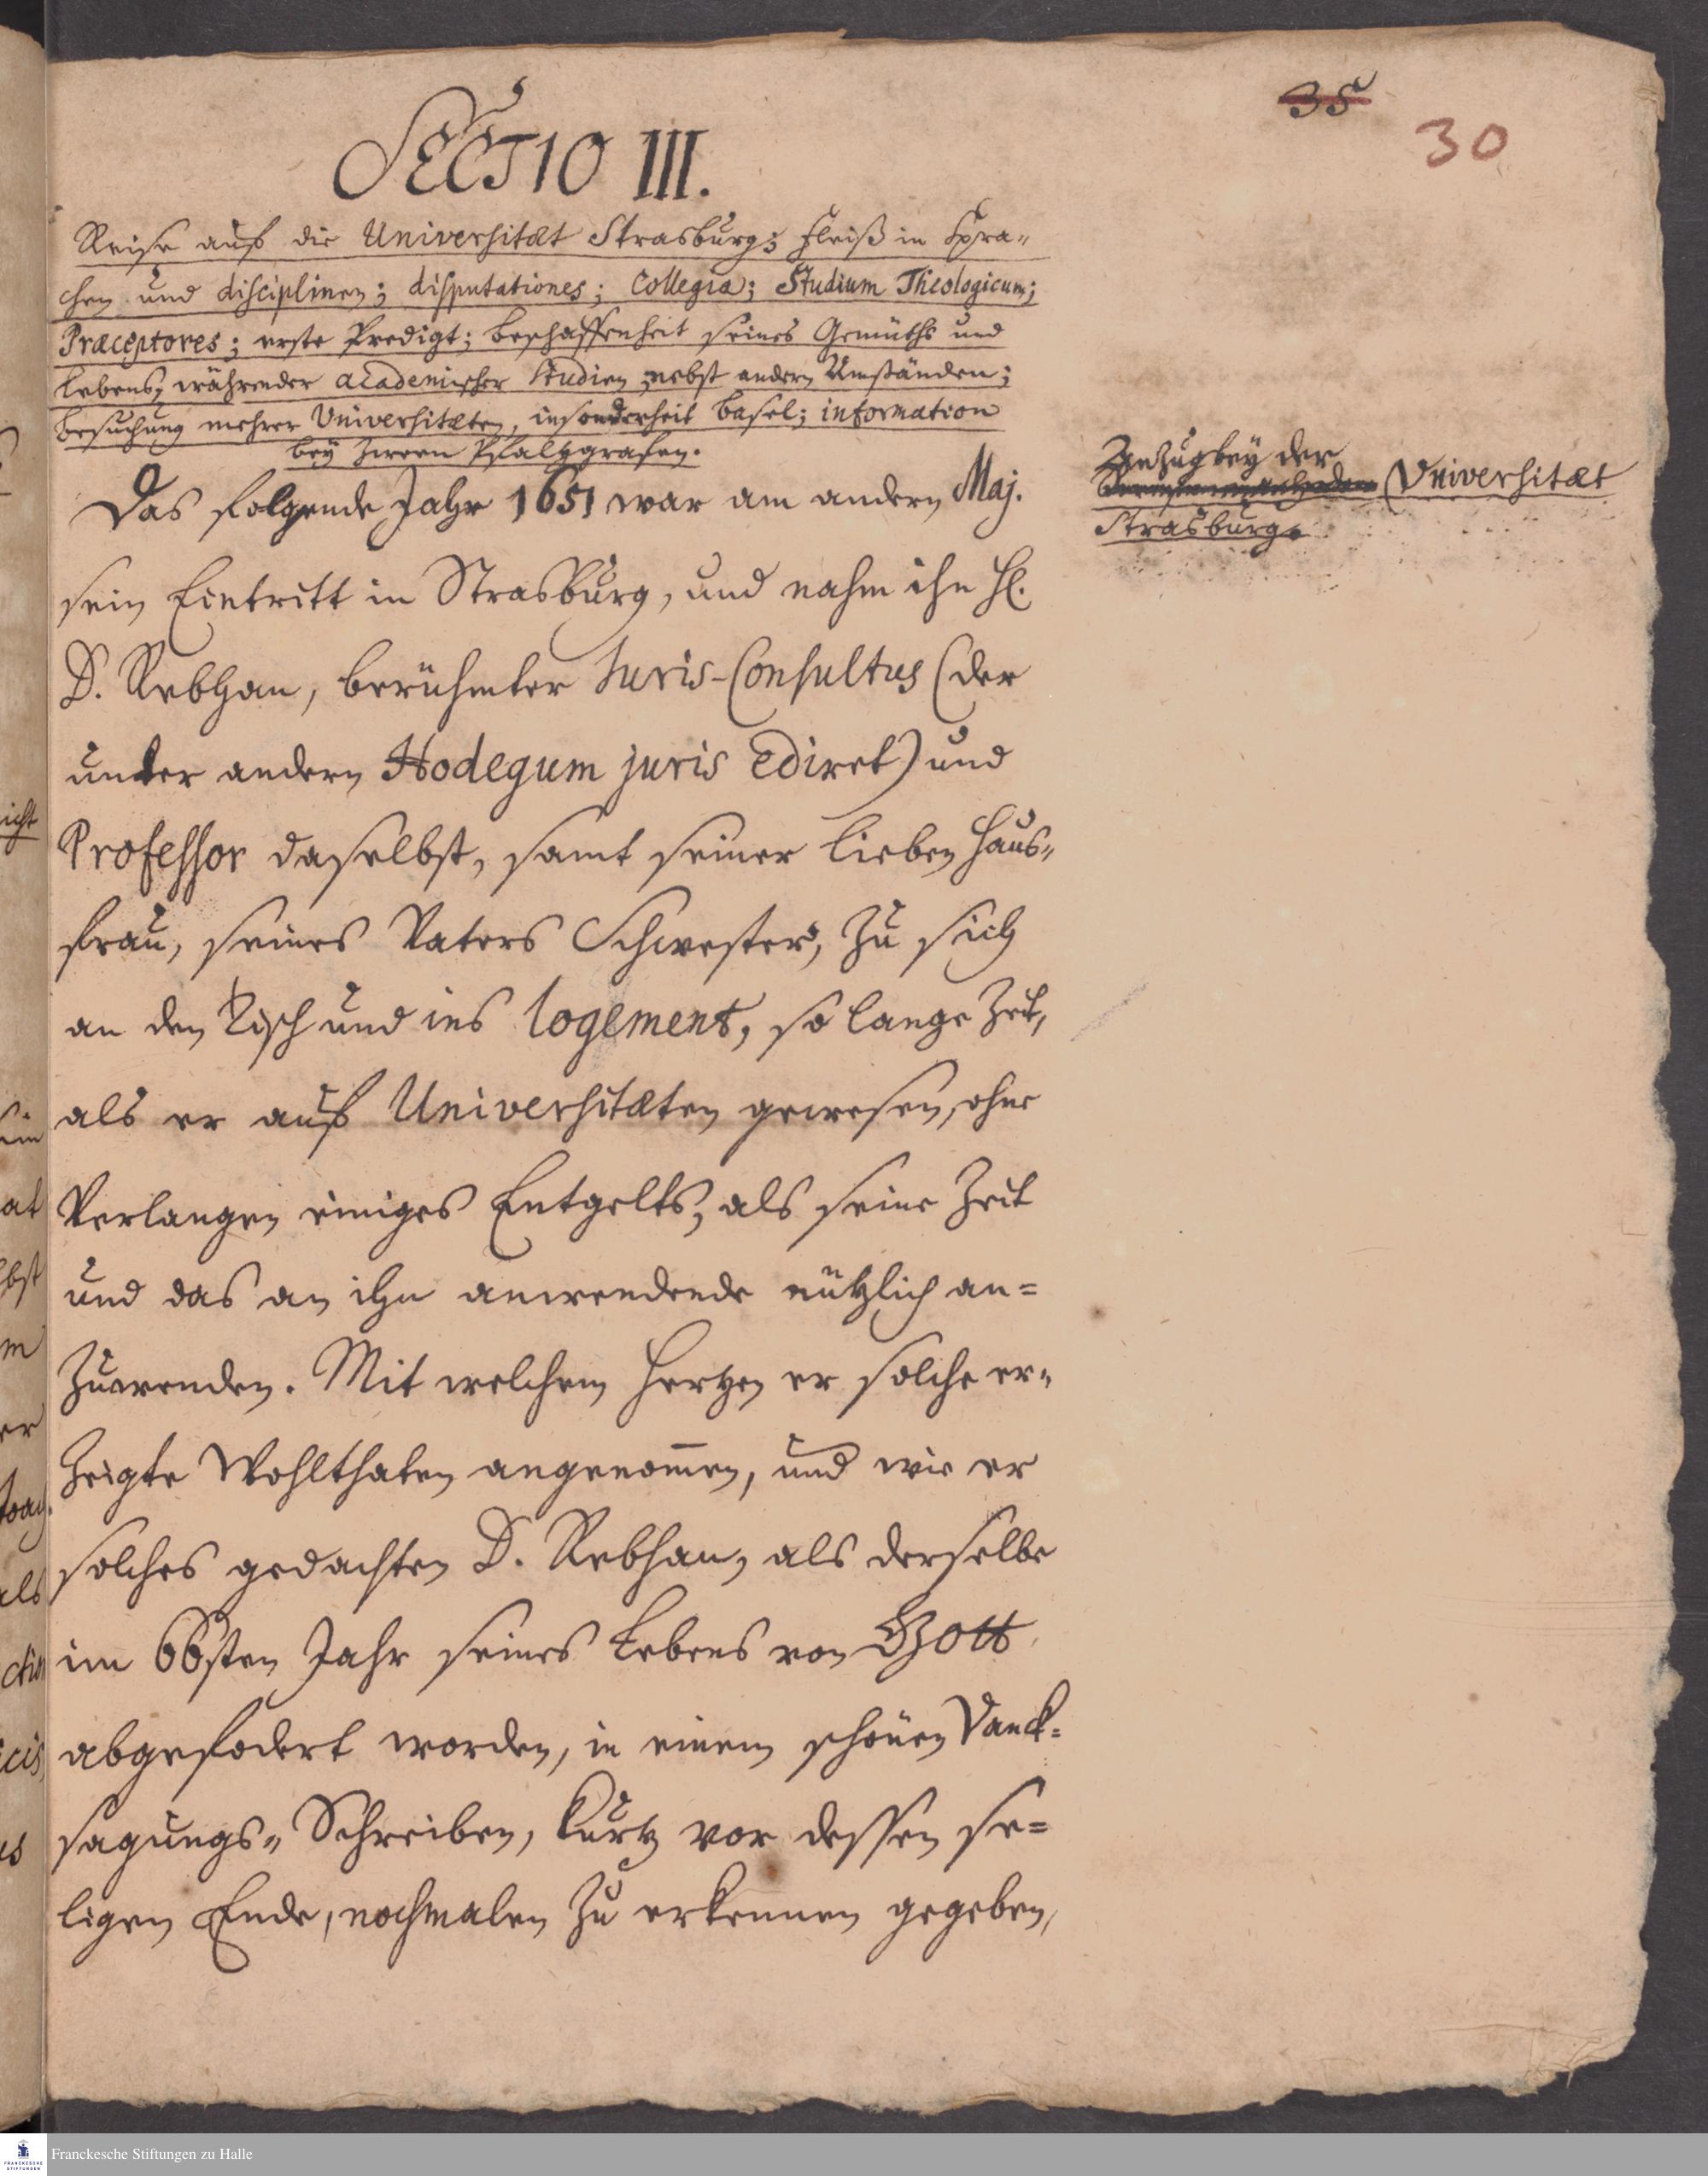 35
30
SECTIO III.
Reise auf die Universitæt Strasburg; Fleiß in Spra-
chen und disciplinen; disputationes; Collegia; Studium Theologicum;
Præceptores; erste Predigt; beschaffenheit seines Gemüths und
lebens, währender academischer Studien, nebst andern Umständen;
besuchung mehrer Universitæten, insonderheit Basel; information
bey zween Pfaltzgrafen.
Das folgende Jahr 1651 war am andern Maj.
sein Eintritt in Strasburg, und nahm ihn H.
D. Rebhan, berühmter Juris-Consultus (der
unter andern Hodegum juris ediret) und
Professor daselbst, samt seiner lieben Haus-
frau, seines Vaters Schwester, zu sich
an den Tisch und ins logement, so lange Zeit,
als er auf Universitæten gewesen, ohne
Verlangen einiges Entgelts, als seine Zeit
und das an ihn anwendende nützlich an=
zuwenden. Mit welchem Hertzen er solche er-
zeigte Wohlthaten angenom̅en, und wie er
solches gedachten D. Rebhan, als derselbe
im 66sten Jahr seines Lebens von Gott
abgefodert worden, in einem schönen Danck=
sagungs-Schreiben, kurtz vor dessen se=
ligen Ende, nochmalen zu erkennen gegeben,
Anzug bey der
Universitæt
Strasburg.
icht
ein
at
bst
m
er
als
icis
us
Franckesche Stiftungen zu Halle
FRANCKESCHE
STIFTUNGEN